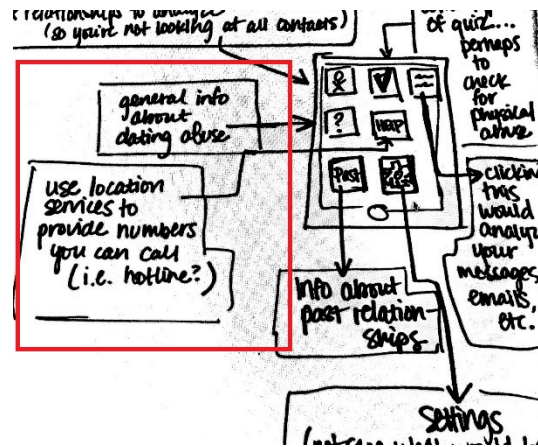 relationships to analyze
(so you're not looking at all contacts)
of quiz....
perhaps
to
check
for
physical
abuse
general info
about
dating abuse
?
HELP
Past
use location
services to
provide numbers
you can call
(i.e. hotline?)
clicking
this
would
analyze
your
messages,
emails,
etc.
Info about
past relation-
ships
Settings